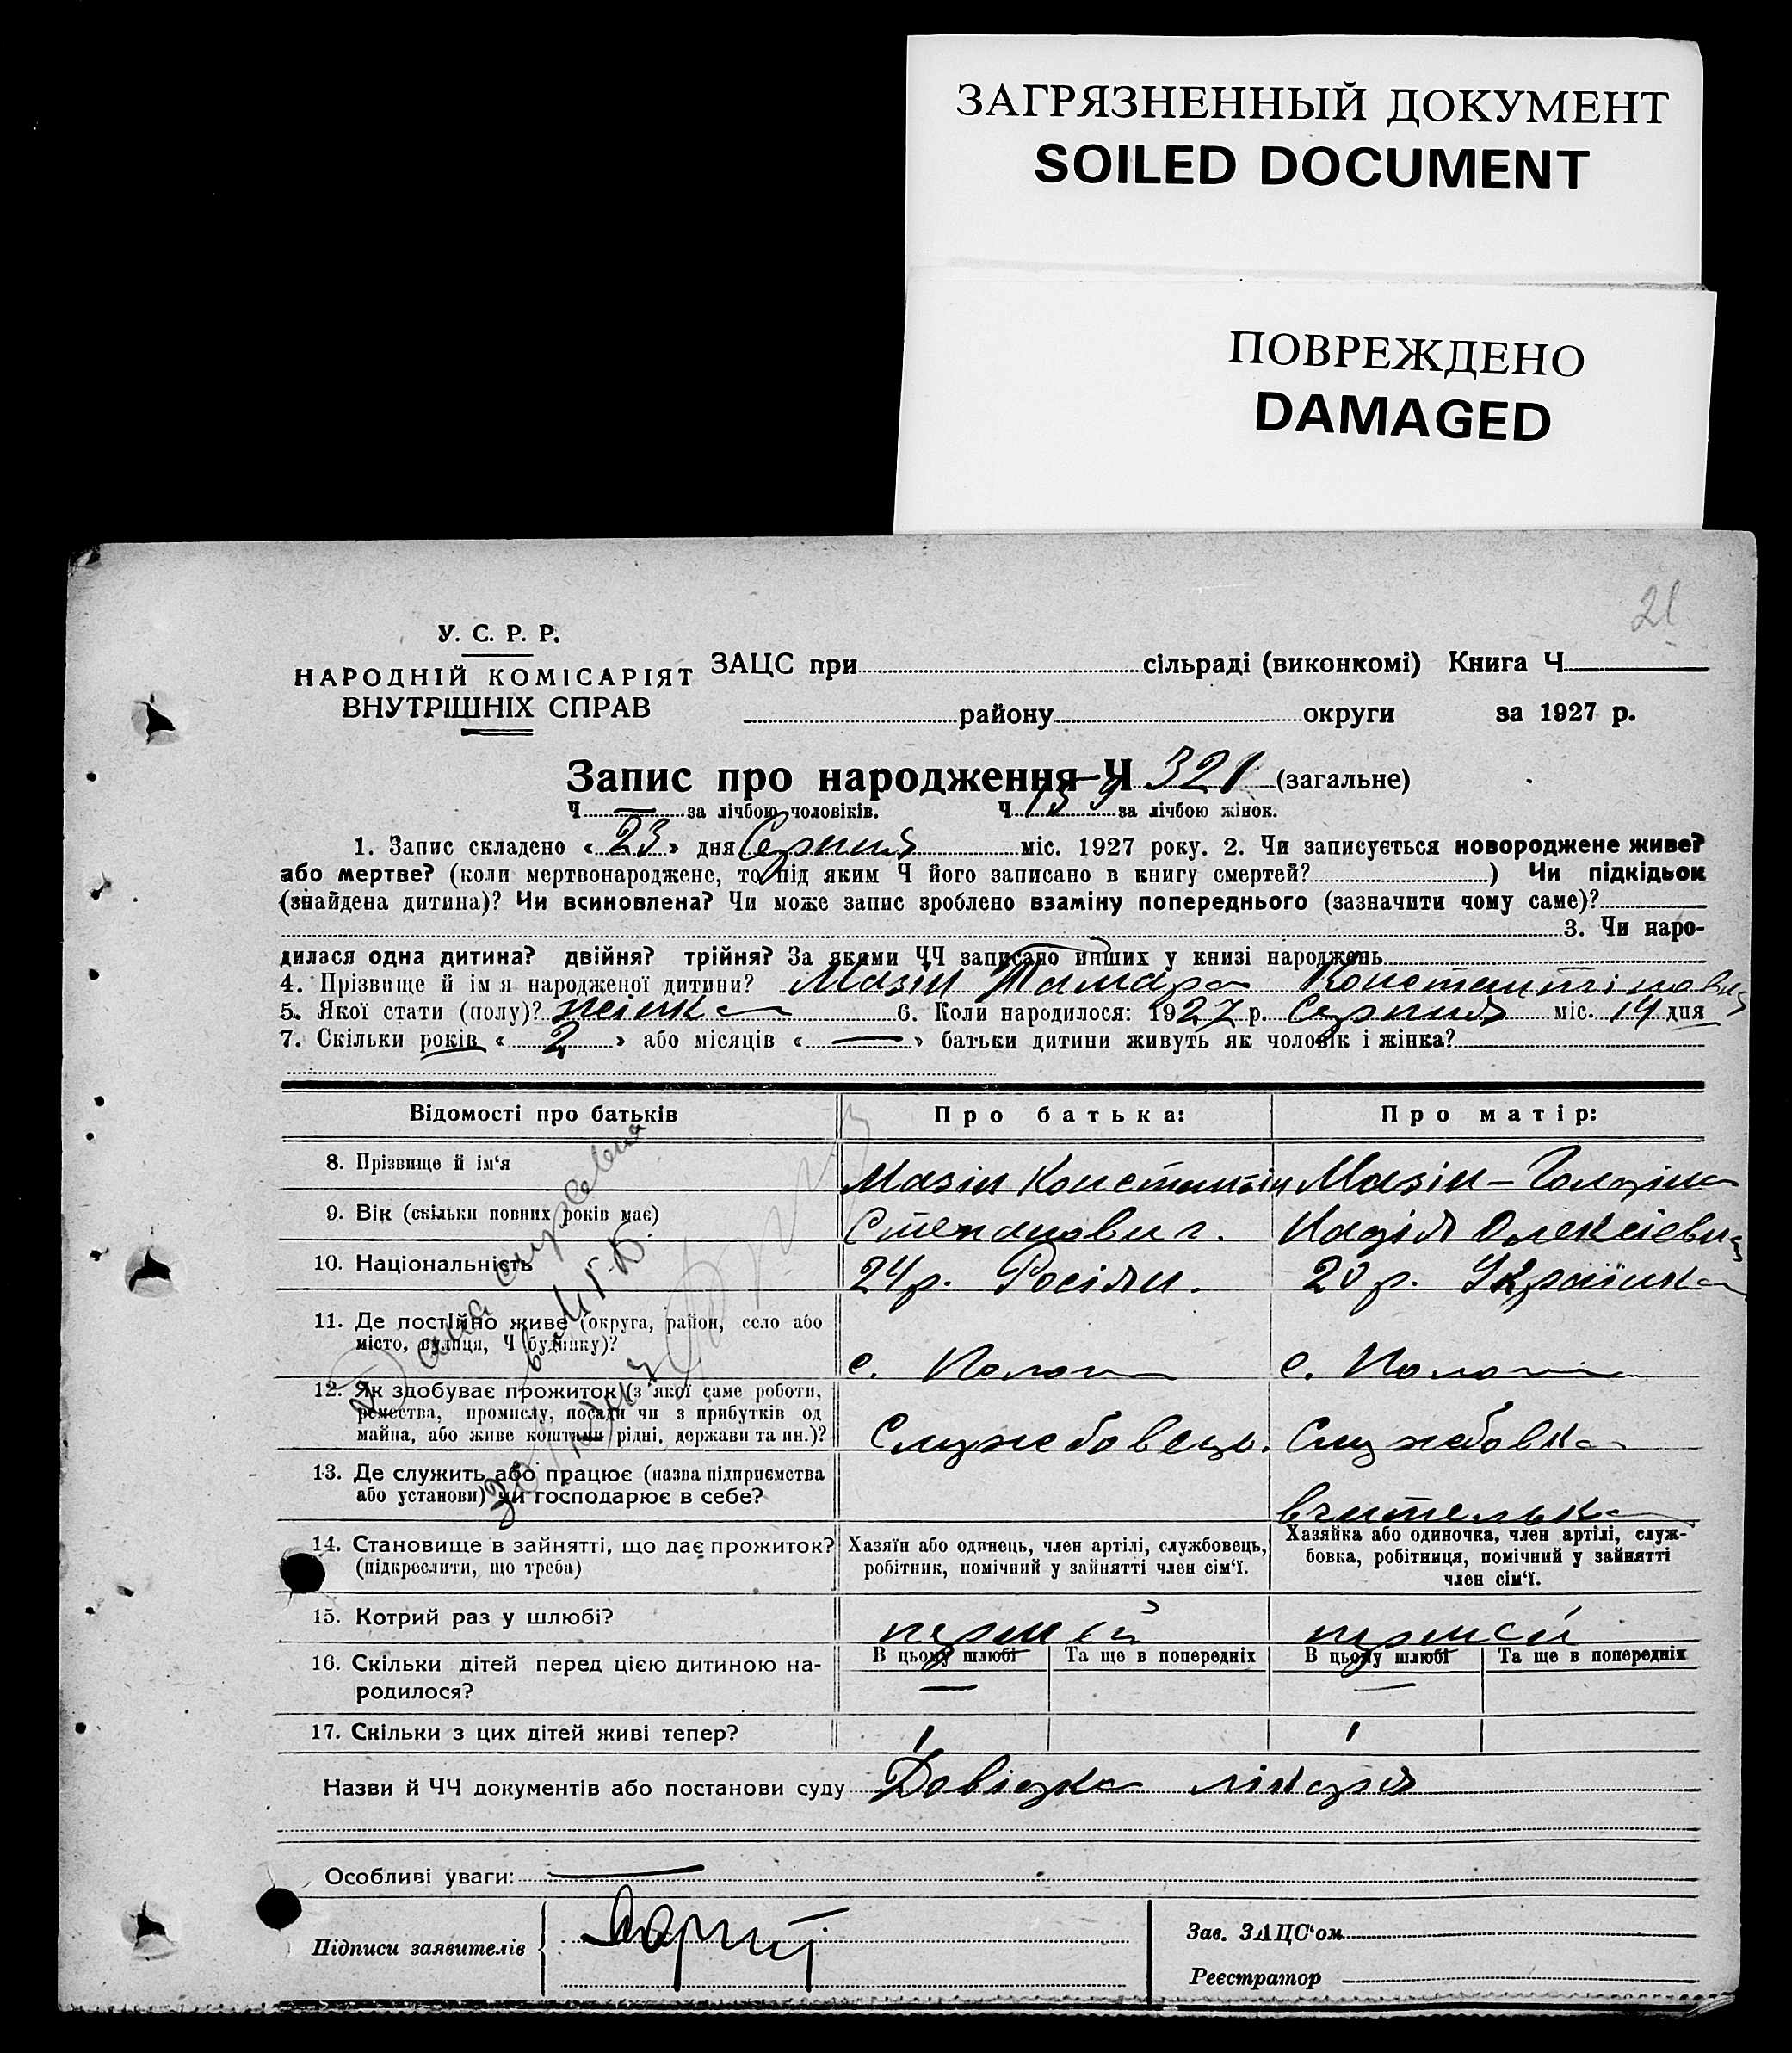 ЗАГРЯЗНЕННЫЙ ДОКУМЕНТ
SOILED DOCUMENT
ПОВРЕЖДЕНО
DAMAGED
21
У. С. Р. Р.
НАРОДНІЙ КОМІСАРІЯТ
ВНУТРІШНІХ СПРАВ
ЗАЦС при сільраді (виконкомі) Книга Ч.
району округи за 1927 р.
Запис про народження Ч 321 (загальне)
Ч. — за лічбою чоловіків. Ч. 159 за лічбою жінок.
1. Запис складено « 23 » дня Серпня міс. 1927 року. 2. Чи записується новороджене живе?
або мертве? (коли мертвонароджене, то під яким Ч його записано в книгу смертей? ) Чи підкідьок
(знайдена дитина)? Чи всиновлена? Чи може запис зроблено взаміну попереднього (зазначити чому саме)?
3. Чи наро-
дилася одна дитина? двійня? трійня? За якими ЧЧ записано инших у книзі народжень
4. Прізвище й ім я народженої дитини? Мазін Тамара Константіновна
5. Якої стати (полу)? жінка 6. Коли народилося: 1927 р. Серпня міс. 14 дня
7. Скільки років « 2 » або місяців « — » батьки дитини живуть як чоловік і жінка?
Відомості про батьків Про батька: Про матір:
8. Прізвище й ім‘я Мазін Константін Мазін-
9. Вік (скільки повних років має) Степанович. Надія Олексієвна
10. Національність 24 р. Росіян. 20 р. Українка
11. Де постійно живе (округа, район, село або
місто, вулиця, Ч будинку)? с. Пологи с. Пологи
12. Як здобуває прожиток (з якої саме роботи,
ремества, промислу, посади чи з прибутків од
майна, або живе коштами рідні, держави та ин.)? Службовець. Службовка
13. Де служить або працює (назва підприємства
або установи) чи господарює в себе? вчителька
14. Становище в зайнятті, що дає прожиток?
(підкреслити, що треба)
Хазяїн або одинець, член артілі, службовець,
робітник, помічний у зайнятті член сім‘ї.
Хазяйка або одиночка, член артілі, служ-
бовка, робітниця, помічний у зайнятті
член сім‘ї.
15. Котрий раз у шлюбі? первий первий
16. Скільки дітей перед цією дитиною на-
родилося?
В цьому шлюбі Та ще в попередніх В цьому шлюбі Та ще в попередніх
— —
17. Скільки з цих дітей живі тепер? 1 1
Назви й ЧЧ документів або постанови суду Довідка лікаря
Особливі уваги: —
Підписи заявителів
Зав. ЗАЦС‘ом
Реєстратор